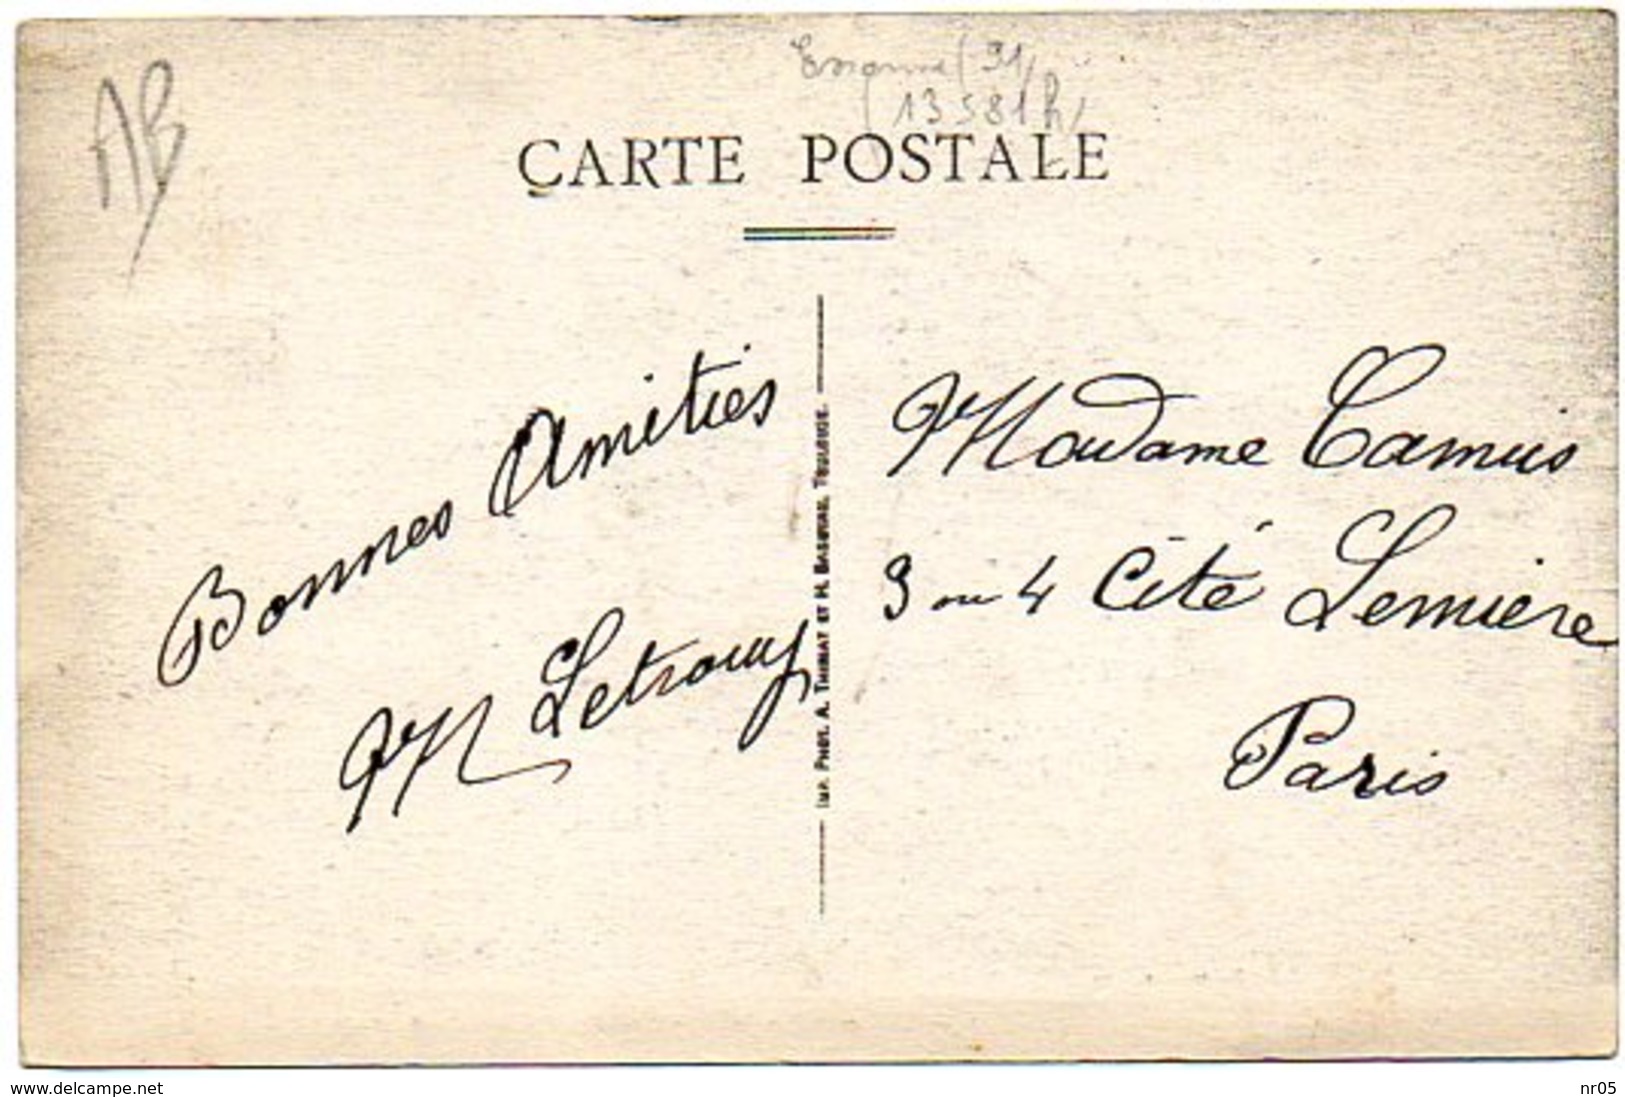 AB
Essonne (91)
(13581 h)
CARTE POSTALE
Bonnes Amities
M Letrouy
IMP. PHOT. A. THIRIAT ET H. BASUYAU, TOULOUSE.
Madame Camus
3 ou 4 Cité Lemiere
Paris
www.delcampe.net
nr05